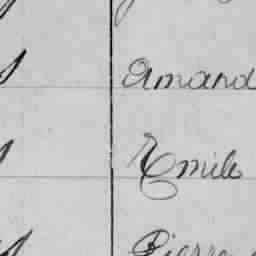 Amand
Emile
Pierre